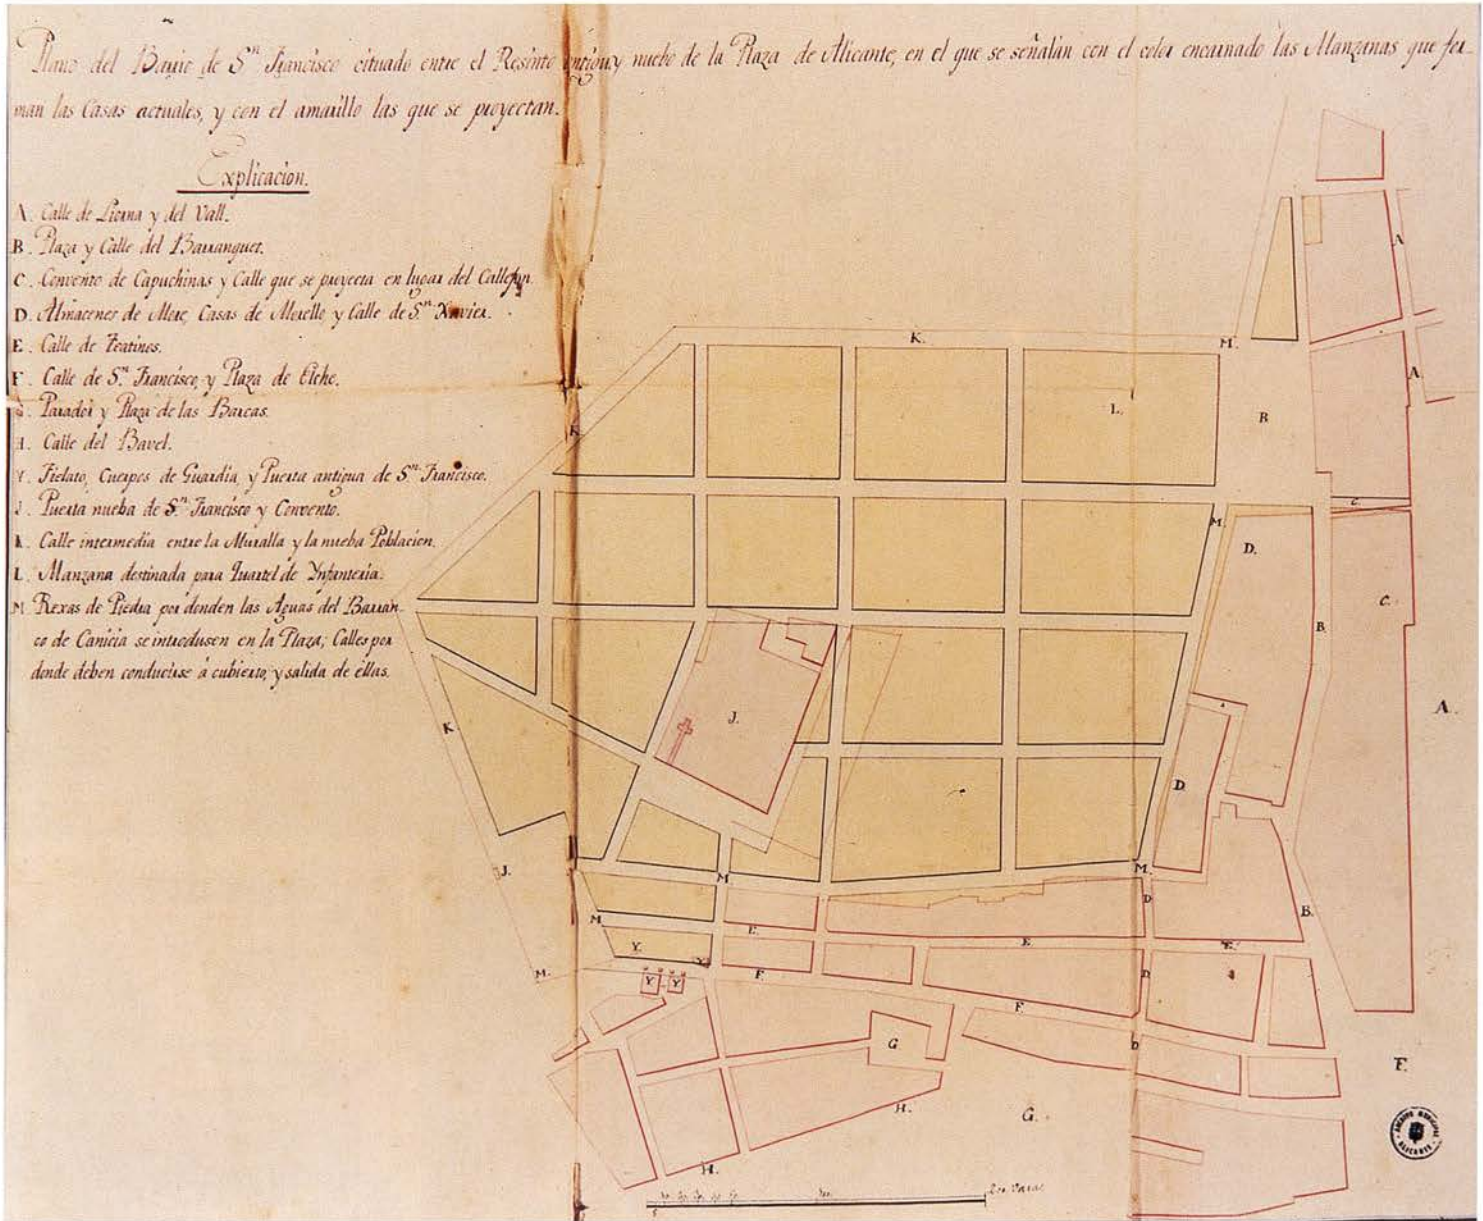 Plano del Barrio de Sⁿ Francisco cituado entre el Resinto antiguo y nuebo de la Plaza de Alicante, en el que se señalan con el color encarnado las Manzanas que for-
man las Casas actuales, y con el amarillo las que se proyectan.
Explicacion.
A. Calle de Liorna y del Vall.
B. Plaza y Calle del Barranquet.
C. Convento de Capuchinas y Calle que se proyecta en lugar del Callejon
D. Almacenes de Calle de Sⁿ Xavier.
E. Calle de Teatinos.
F. Calle de Sⁿ Francisco, y Plaza de Elche.
G. Parador y Plaza de las Barcas.
H. Calle del Bavel.
Y. Fielato, Cuerpos de Guardia, y Puerta antigua de Sⁿ Francisco.
J. Puerta nueba de Sⁿ Francisco y Convento.
K. Calle intermedia entre la Muralla y la nueba Poblacion.
L. Manzana destinada para Quartel de Ynfanteria.
M. Rexas de Piedra por donden las Aguas del Barran-
co de Canicia se introdusen en la Plaza; Calles por
donde deben conducirse à cubierto, y salida de ellas.
A
K.
M.
A
L.
B
K
C.
M.
D.
C.
B.
J.
A.
K
D.
J.
M
M.
D
B.
M.
E.
E
E.
Y.
Y
M.
Y
Y
F.
D
F.
G
D
F.
H.
G.
H.
200 Varas
ARCHIVO MUNICIPAL
ALICANTE